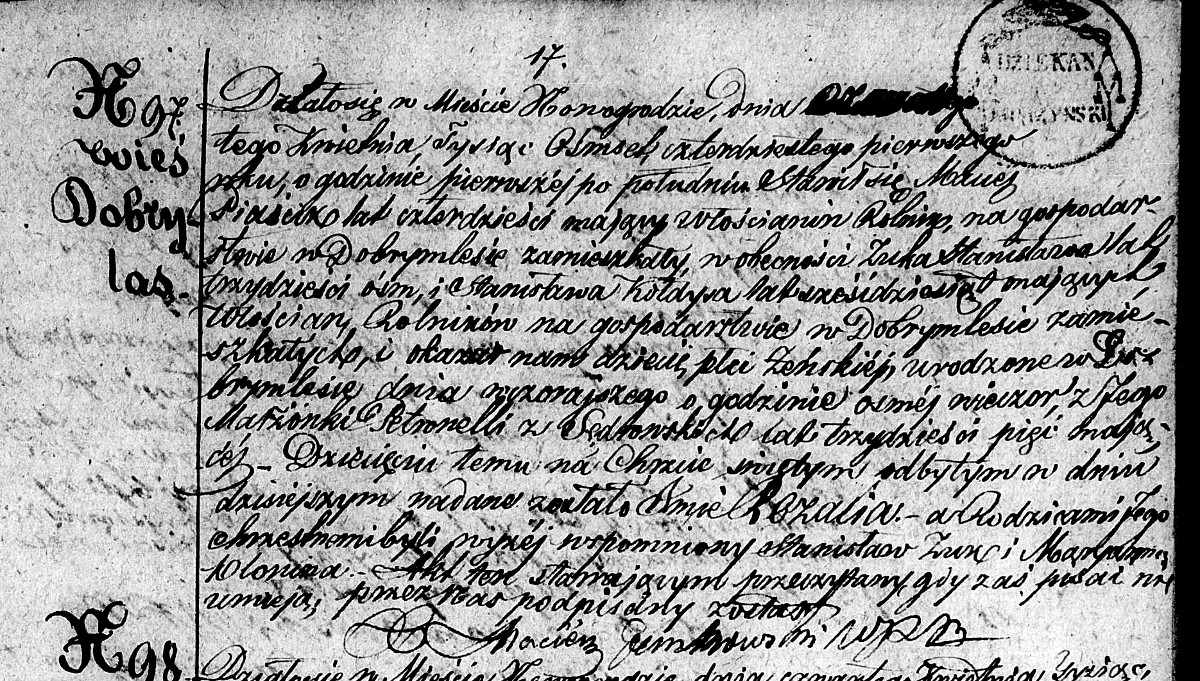 17.
DZIEKAN
N 97.
wieś
Dobry-
las.
Działo się w Mieście Nowogrodzie, dnia
tego Kwietnia, Tysiąc Ośmset czterdziestego pierwszego
roku, o godzinie pierwszéj po południu. Stawił się Maciej
Piaścik lat czterdzieści mający Włościanin Rolnik, na gospodar-
stwie w Dobrymlesie zamieszkały, w obecności Żuka Stanisława lat
trzydzieści ośm, i Stanisława Kołdysa lat sześćdziesiąt mających
Włościan, Rolników na gospodarstwie w Dobrymlesie zamie-
szkałych, i okazał nam dziecię płci żeńskiéj urodzone w Do-
brymlesie, dnia wczorajszego o godzinie ósméj wieczor z Jego
Małżonki Petronelli z lat trzydzieści pięć mają-
céj. Dziecięciu temu na Chrzcie świętym odbytym w dniu
dzisiejszym nadane zostało Imie Rozalia. - a Rodzicami Jego
chrzestnemi byli wyżéj wspomniony Stanisław Żuk i Maryanna
. - Akt ten stawającym przeczytany, gdy zaś pisać nie
umieją, przez Nas podpisany został
N 98.
Działo się w Mieście Nowogrodzie, dnia czwartego Kwietnia, Tysiąc